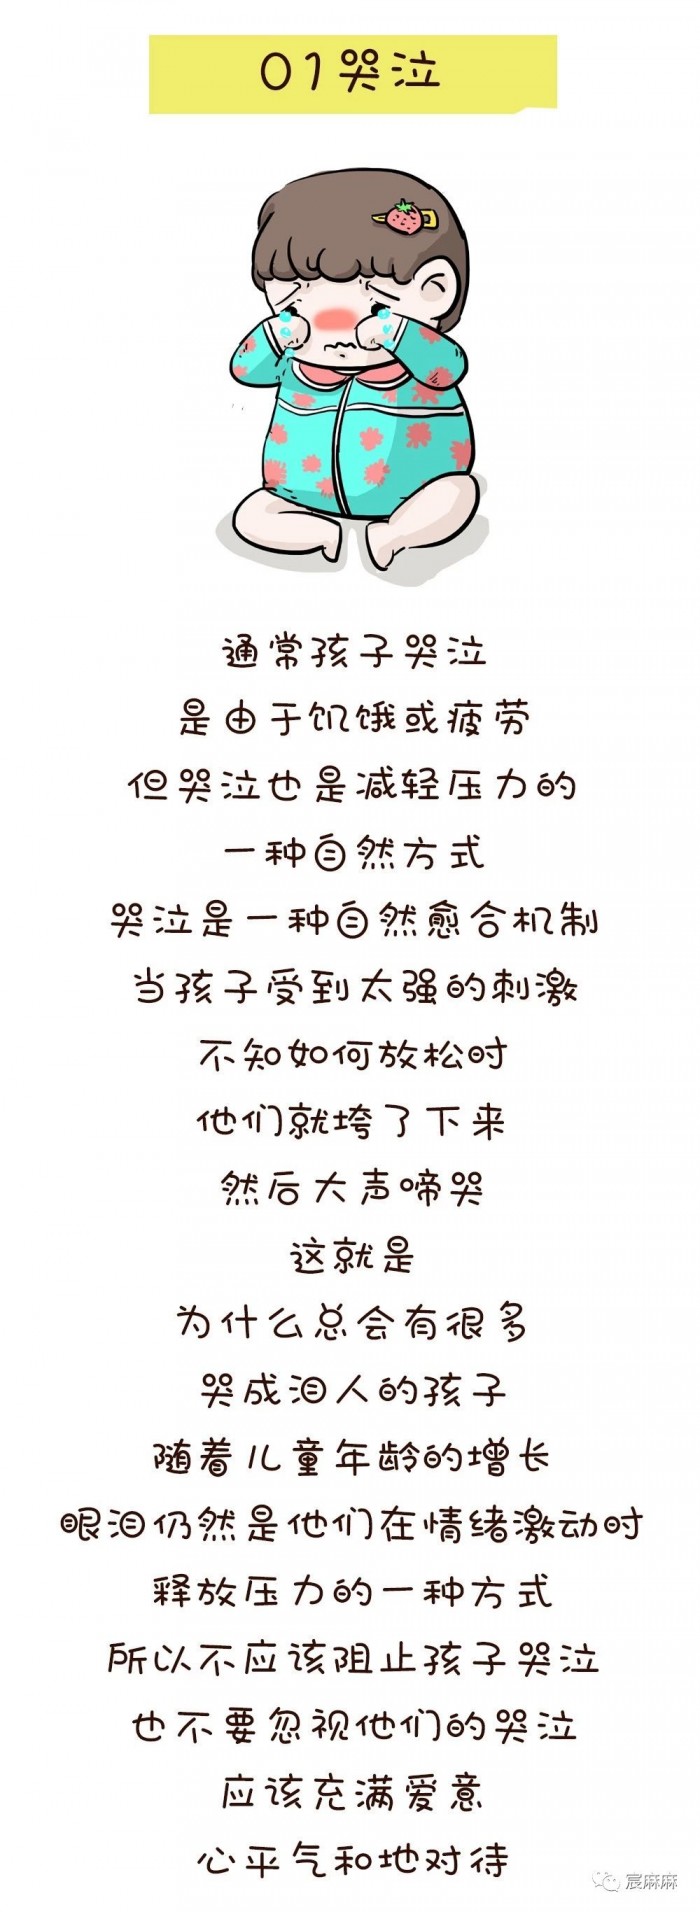 01哭泣
通常孩子哭泣
是由于饥饿或疲劳
但哭泣也是减轻压力的
一种自然方式
哭泣是一种自然愈合机制
当孩子受到太强的刺激
不知如何放松时
他们就垮了下来
然后大声啼哭
这就是
为什么总会有很多
哭成泪人的孩子
随着儿童年龄的增长
眼泪仍然是他们在情绪激动时
释放压力的一种方式
所以不应该阻止孩子哭泣
也不要忽视他们的哭泣
应该充满爱意
心平气和地对待
宸麻麻